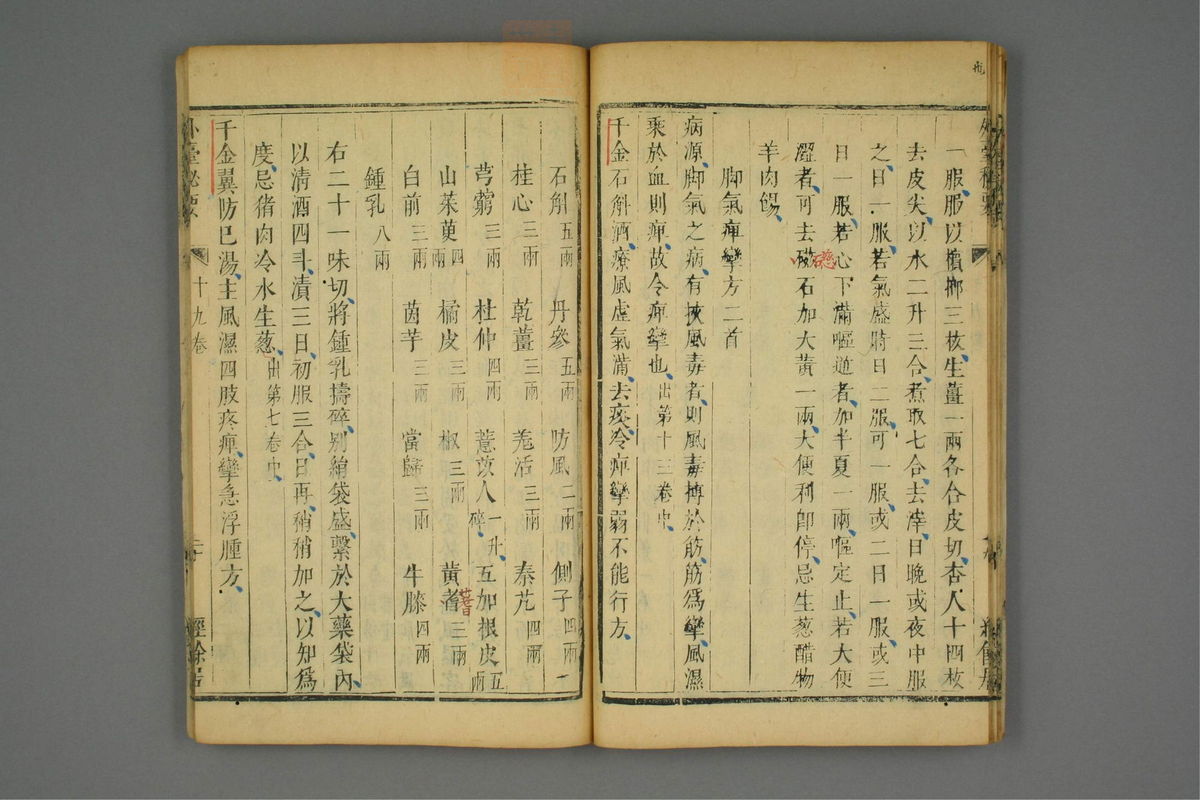 一服服以檳榔三枚生薑一兩各合皮切杏人十四枚
去皮尖以水二升三合煮取七合去滓日晚或夜中服
之日一服若氣盛時日二服可一服或二日一服或三
日一服若心下滿嘔逆者加半夏一兩嘔定止若大便
澀者可去磁石加大黃一兩大便利即停忌生葱醋物
羊肉餳
脚氣痺攣方二首
病源脚氣之病有挾風毒者則風毒搏於筋筋爲攣風濕
乘於血則痺故令痺攣也出第十三卷中
千金石斛酒療風虛氣滿去疼冷痺攣弱不能行方
石斛五兩 丹參五兩 防風二兩 側子四兩
桂心三兩 乾薑三兩 羗活三兩 秦艽四兩
芎藭三兩 杜仲四兩 薏苡人一升碎 五加根皮五兩
山茱萸四兩 橘皮三兩 椒三兩 黃耆三兩
白前三兩 茵芋三兩 當歸三兩 牛膝四兩
鍾乳八兩
右二十一味切將鍾乳擣碎別絹袋盛繫於大藥袋內
以清酒四斗漬三日初服三合日再稍稍加之以知爲
度忌猪肉冷水生葱出第七卷中
千金翼防巳湯主風濕四肢疼痺攣急浮腫方
外臺秘要 十九卷 二十 經餘居